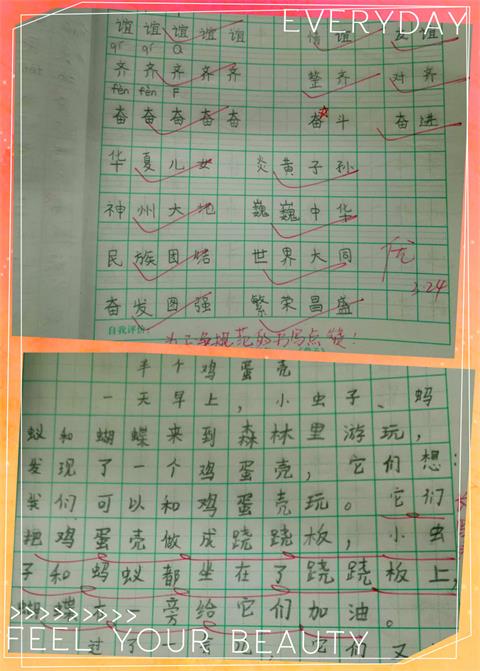 EVERYDAY
谊 谊 谊 谊 谊 情 谊 友 谊
qí qí Q
齐 齐 齐 齐 齐 整 齐 对 齐
fèn fèn F
奋 奋 奋 奋 奋 奋 斗 奋 进
华 夏 儿 女 炎 黄 子 孙
神 州 大 地 巍 巍 中 华
民 族 团 结 世 界 大 同
优
3.24
奋 发 图 强 繁 荣 昌 盛
自我评价:
规范的书写点赞!
半个鸡蛋壳
一天早上，小虫子、蚂
蚁和蝴蝶来到森林里游玩，
发现了一个鸡蛋壳，它们想：
我们可以和鸡蛋壳玩。它们
把鸡蛋壳做成跷跷板，小虫
子和蚂蚁都坐在了跷跷板上，
蝴蝶在一旁给它们加油。
>>>>>>>>>>
FEEL YOUR BEAUTY
过了一会儿，它们又